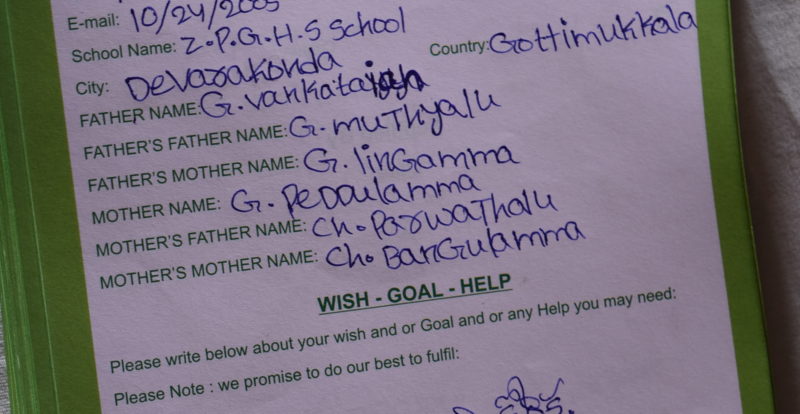 E-mail: 10/24/2005
School Name: Z.P.G.H.S School
City: Devarakonda Country: Gottimukkala
FATHER NAME: G. Vankataiah
FATHER'S FATHER NAME: G. muthyalu
FATHER'S MOTHER NAME: G. linGamma
MOTHER NAME: G. Peddulamma
MOTHER'S FATHER NAME: Ch. Parwathalu
MOTHER'S MOTHER NAME: Ch. BanGulamma
WISH - GOAL - HELP
Please write below about your wish and or Goal and or any Help you may need:
Please Note : we promise to do our best to fulfil: